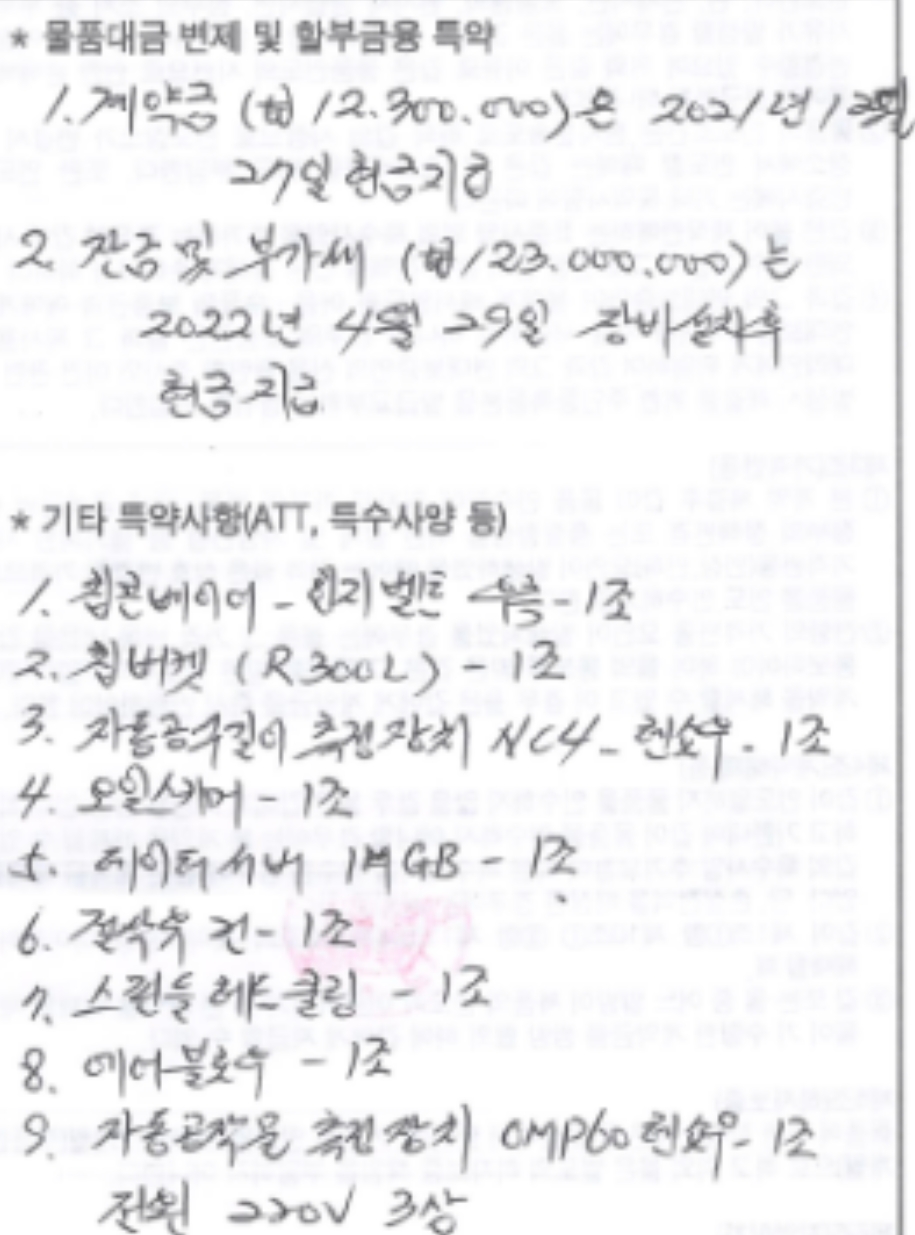 * 물품대금 변제 및 할부금융 특약
1. 계약금 (₩12.300.000)은 2021년 12월
27일 현금지급
2. 잔금 및 부가세 (₩123.000.000)는
2022년 4월 29일 장비설치후
현금지급
* 기타 특약사항(ATT, 특수사양 등)
1. 칩콘베이어 - 힌지벨트 - 1조
2. 칩버켓 (R300L) - 1조
3. 자동공구길이 측정장치 NC4 - 레니쇼우 - 1조
4. 오일스키머 - 1조
5. 데이터서버 1GB - 1조
6. 절삭유 건 - 1조
7. 스핀들 헤드 쿨링 - 1조
8. 에어블로우 - 1조
9. 자동공작물 측정장치 OMP60 - 1조
전원 220V 3상